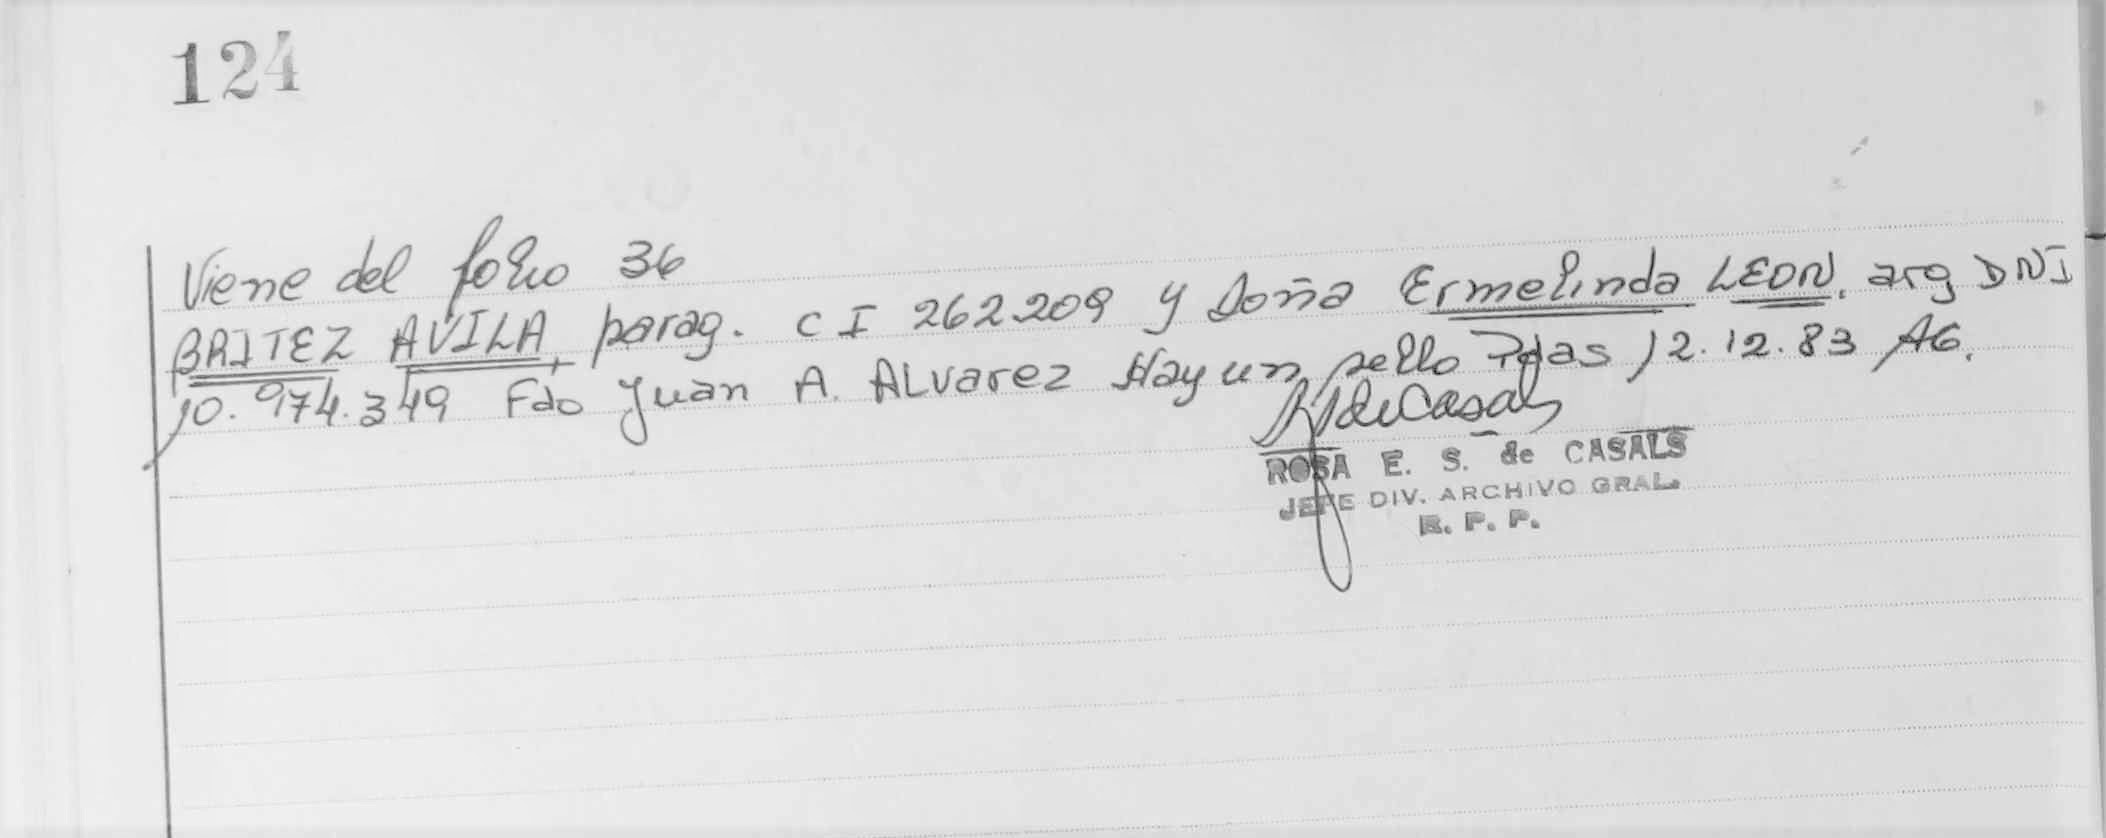 124
Viene del folio 36
BRITEZ AVILA, parag. C I 262209 y Doña Ermelinda LEON. arg DNI
10.974.349 Fdo Juan A. ALvarez Hay un sello Pdas 12.12.83 AG.
RdeCasals
ROSA E. S. de CASALS
JEFE DIV. ARCHIVO GRAL.
R. P. P.